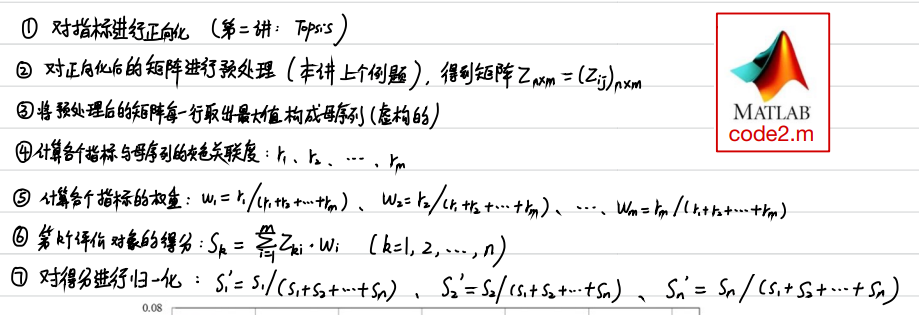 ① 对指标进行正向化 (第二讲: Topsis)
② 对正向化后的矩阵进行预处理 (本讲上个例题), 得到矩阵 Zn×m = (Zij)n×m
MATLAB
code2.m
③ 将预处理后的矩阵每一行取出最大值构成母序列 (虚构的)
④ 计算各个指标与母序列的灰色关联度: r1、r2、…、rm
⑤ 计算各个指标的权重: W1 = r1/(r1+r2+…+rm)、W2 = r2/(r1+r2+…+rm)、…、Wm = rm/(r1+r2+…+rm)
⑥ 第k个评价对象的得分: Sk = ∑_{i=1}^{m} Zki·Wi (k=1,2,…,n)
⑦ 对得分进行归一化: S1' = S1/(S1+S2+…+Sn)、S2' = S2/(S1+S2+…+Sn)、Sn' = Sn/(S1+S2+…+Sn)
0.08